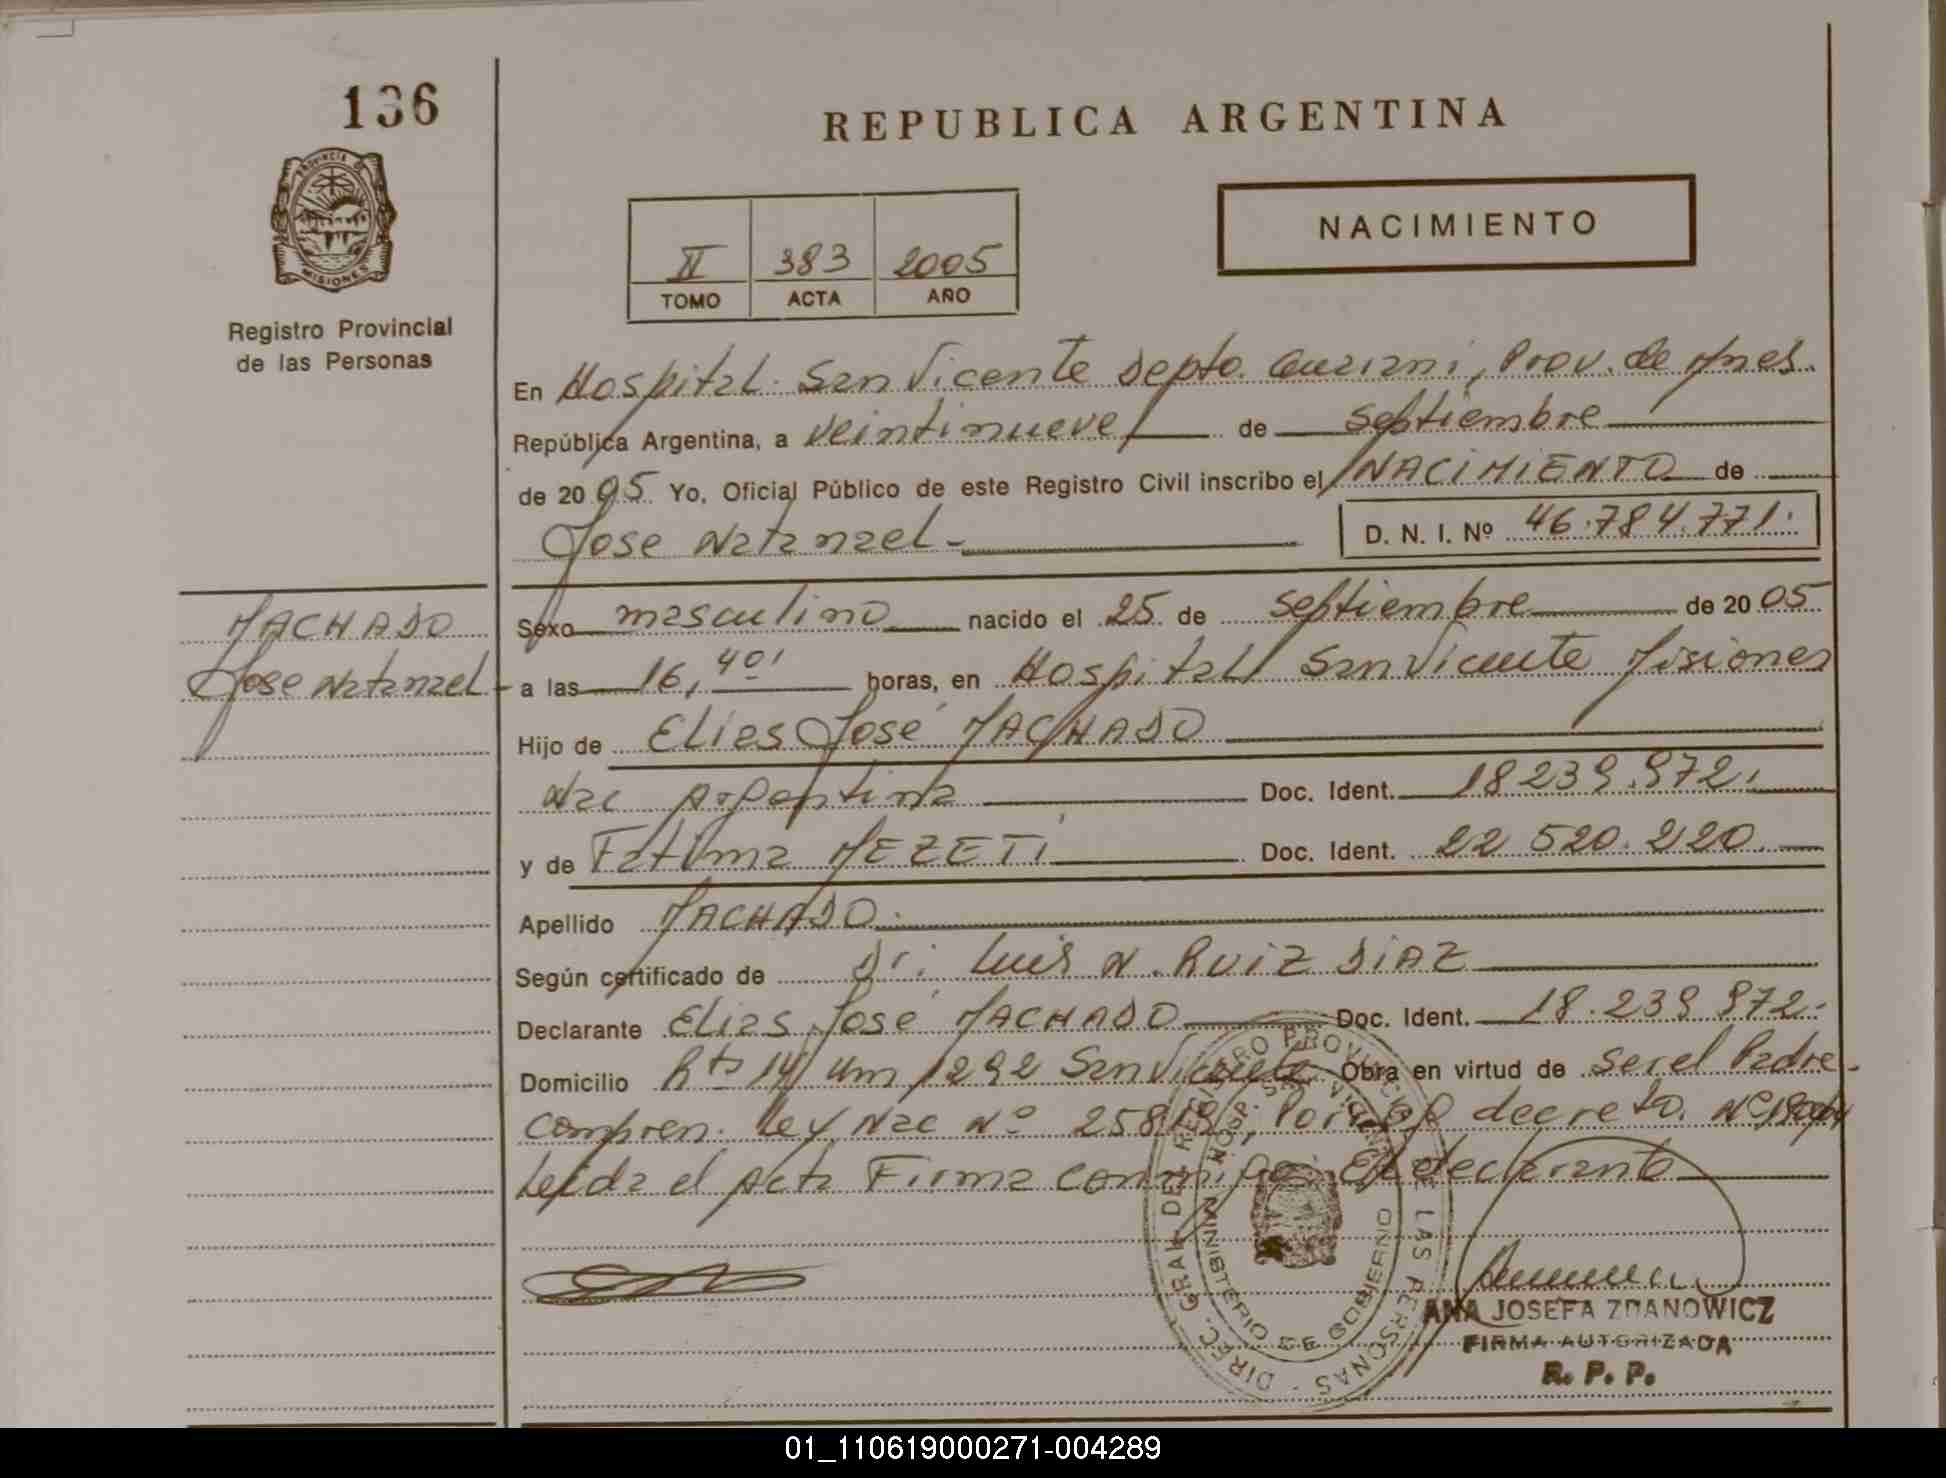 136
REPUBLICA ARGENTINA
PROVINCIA DE
MISIONES
Registro Provincial
de las Personas
II 383 2005
TOMO ACTA AÑO
NACIMIENTO
En Hospital San Vicente Depto. Guarani, Prov. de Mnes.
República Argentina, a veintinueve de septiembre
de 2005 Yo, Oficial Público de este Registro Civil inscribo el NACIMIENTO de
Jose Natanael - D. N. I. Nº 46.784.771.
MACHADO
Jose Natanael -
Sexo masculino nacido el 25 de septiembre de 2005
a las 16,40' horas, en Hospital San Vicente Misiones
Hijo de Elias José MACHADO
Nac Argentina Doc. Ident. 18 239.972.
y de Fatima MEZETI Doc. Ident. 22 520.220.
Apellido MACHADO.
Según certificado de Dr. Luis N. RUIZ DIAZ
Declarante Elias José MACHADO Doc. Ident. 18.239 972.
Domicilio Rta 14 Km 1292 San Vicente Obra en virtud de ser el Padre.
compren. ley Nac Nº decreto. Nº
Leida el Acta Firma conmigo: El declarante
DIREC. GRAL. DEL REGISTRO PROVINCIAL DE LAS PERSONAS
HOSP. SAN VICENTE
MINISTERIO DE GOBIERNO
ANA JOSEFA ZDANOWICZ
FIRMA AUTORIZADA
R. P. P.
01_110619000271-004289